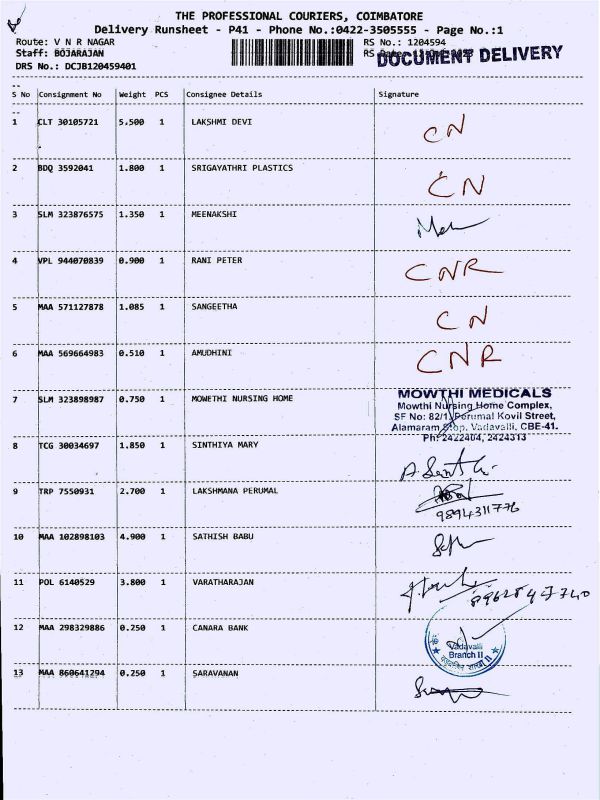 THE PROFESSIONAL COURIERS, COIMBATORE
Delivery Runsheet - P41 - Phone No.:0422-3505555 - Page No.:1
Route: V N R NAGAR RS No.: 1204594
Staff: BOJARAJAN RS DOCUMENT DELIVERY
DRS No.: DCJB120459401
S No Consignment No Weight PCS Consignee Details Signature
1 CLT 30105721 5.500 1 LAKSHMI DEVI CN
2 BDQ 3592041 1.800 1 SRIGAYATHRI PLASTICS CN
3 SLM 323876575 1.350 1 MEENAKSHI
4 VPL 944070839 0.900 1 RANI PETER CNR
5 MAA 571127878 1.085 1 SANGEETHA CN
6 MAA 569664983 0.510 1 AMUDHINI CNR
7 SLM 323898987 0.750 1 MOWETHI NURSING HOME
MOWTHI MEDICALS
Mowthi Nursing Home Complex,
SF No: 82/1, Perumal Kovil Street,
Alamaram Stop, Vadavalli, CBE-41.
Ph: 2422404, 2424313
8 TCG 30034697 1.850 1 SINTHIYA MARY
9 TRP 7550931 2.700 1 LAKSHMANA PERUMAL
9894311776
10 MAA 102898103 4.900 1 SATHISH BABU
11 POL 6140529 3.800 1 VARATHARAJAN
12 MAA 298329886 0.250 1 CANARA BANK
Vadavalli
Branch II
13 MAA 860641294 0.250 1 SARAVANAN